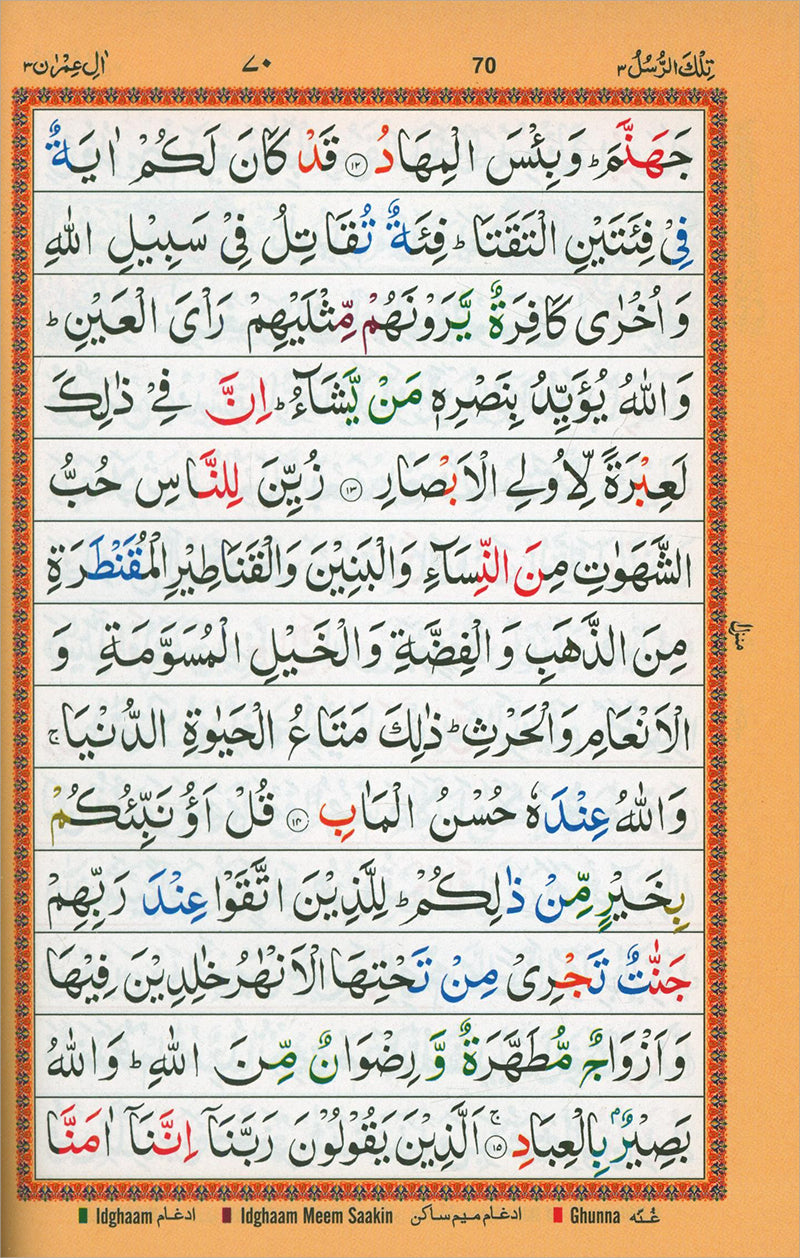 تِلْكَ الرُّسُلُ ٣ 70 ٧٠ اٰلِ عِمْرٰن ٣
جَهَنَّمَ ؕ وَبِئْسَ الْمِهَادُ ﴿۱۲﴾ قَدْ كَانَ لَكُمْ اٰيَةٌ
فِيْ فِئَتَيْنِ الْتَقَتَا ؕ فِئَةٌ تُقَاتِلُ فِيْ سَبِيْلِ اللّٰهِ
وَ اُخْرٰى كَافِرَةٌ يَّرَوْنَهُمْ مِّثْلَيْهِمْ رَاْيَ الْعَيْنِ ؕ
وَاللّٰهُ يُؤَيِّدُ بِنَصْرِهٖ مَنْ يَّشَآءُ ؕ اِنَّ فِيْ ذٰلِكَ
لَعِبْرَةً لِّاُولِي الْاَبْصَارِ ﴿۱۳﴾ زُيِّنَ لِلنَّاسِ حُبُّ
الشَّهَوٰتِ مِنَ النِّسَآءِ وَالْبَنِيْنَ وَالْقَنَاطِيْرِ الْمُقَنْطَرَةِ
مِنَ الذَّهَبِ وَ الْفِضَّةِ وَ الْخَيْلِ الْمُسَوَّمَةِ وَ
الْاَنْعَامِ وَالْحَرْثِ ؕ ذٰلِكَ مَتَاعُ الْحَيٰوةِ الدُّنْيَا ۚ
وَاللّٰهُ عِنْدَهٗ حُسْنُ الْمَاٰبِ ﴿۱۴﴾ قُلْ اَؤُنَبِّئُكُمْ
بِخَيْرٍ مِّنْ ذٰلِكُمْ ؕ لِلَّذِيْنَ اتَّقَوْا عِنْدَ رَبِّهِمْ
جَنّٰتٌ تَجْرِيْ مِنْ تَحْتِهَا الْاَنْهٰرُ خٰلِدِيْنَ فِيْهَا
وَ اَزْوَاجٌ مُّطَهَّرَةٌ وَّ رِضْوَانٌ مِّنَ اللّٰهِ ؕ وَاللّٰهُ
بَصِيْرٌۢ بِالْعِبَادِ ۚ﴿۱۵﴾ اَلَّذِيْنَ يَقُوْلُوْنَ رَبَّنَآ اِنَّنَآ اٰمَنَّا
منزل
Idghaam ادغام Idghaam Meem Saakin ادغام میم ساکن Ghunna غُنّہ